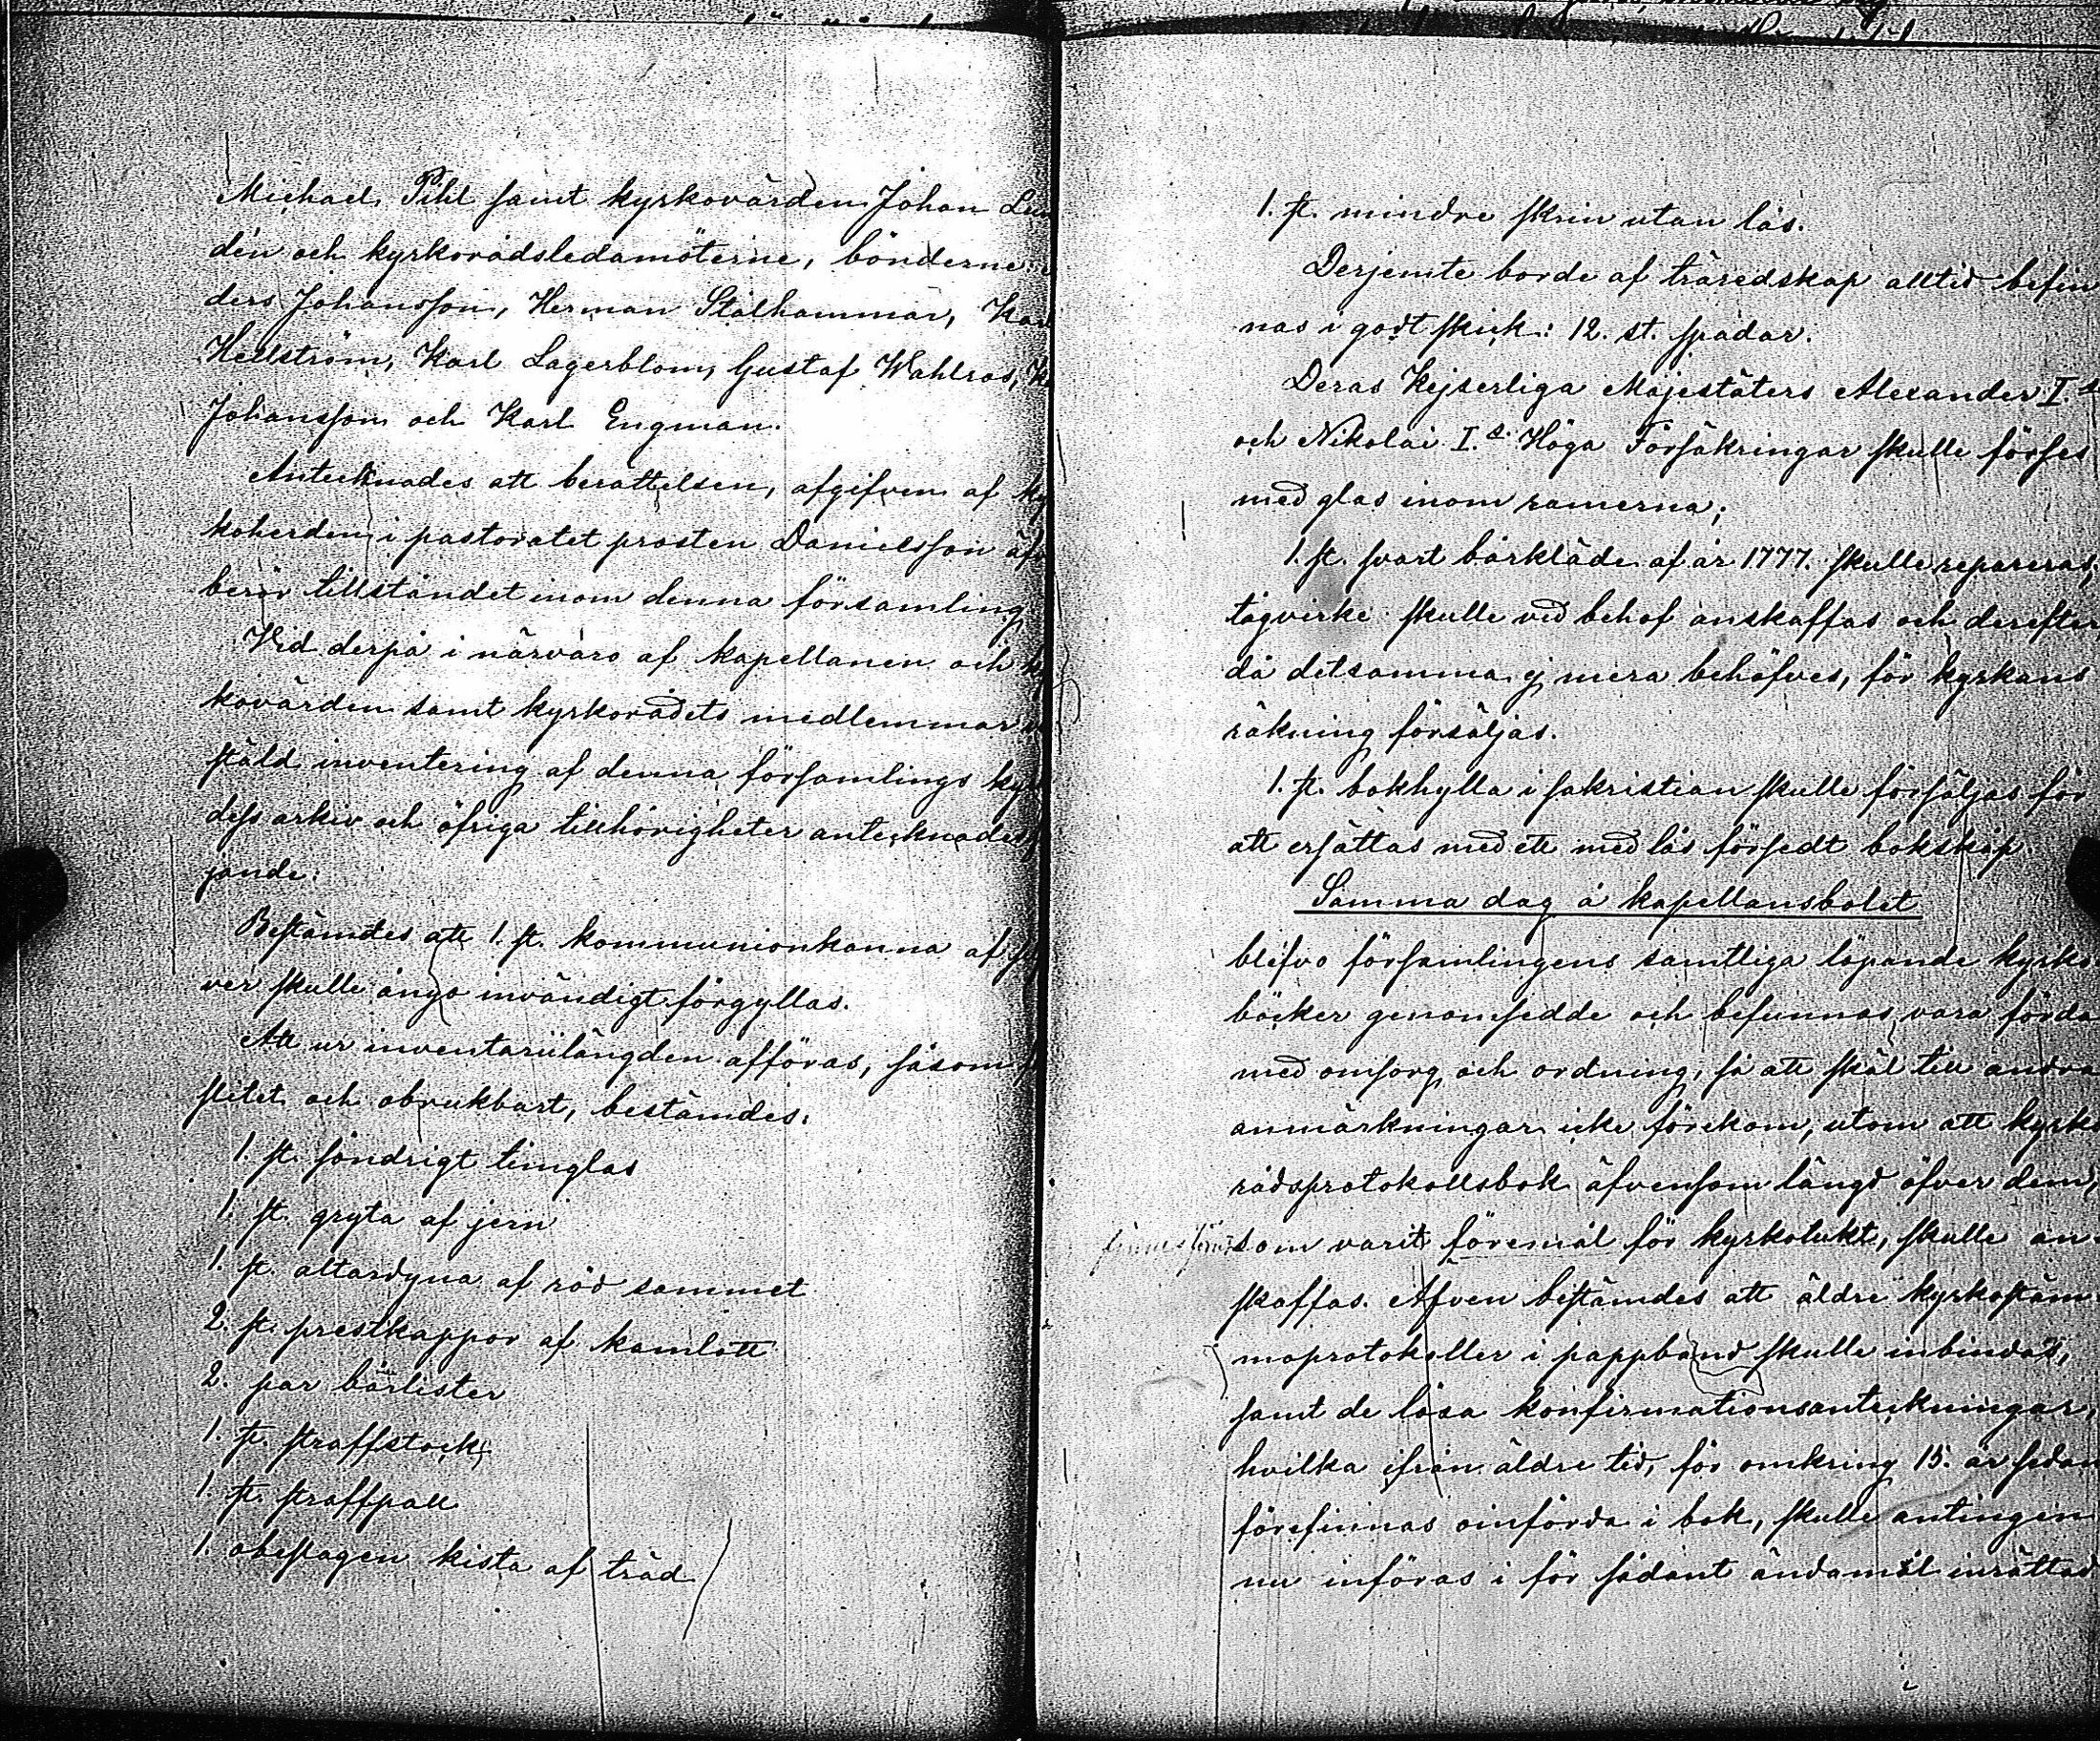 Michael Pihl samt kyrkovärden Johan Lun
dén och kyrkorådsledamöterne, bönderne
ders Johansson, Herman Stålhammar, Karl
Hellström, Karl Lagerblom, Gustaf Wahlros, K
Johansson och Karl Engman.
Antecknades att berättelsen, afgifven af ky
koherden i pastoratet prosten Danielsson äfv
berör tillståndet inom denna församling
Vid derpå i närvaro af kapellanen och ky
kovärden samt kyrkorådets medlemmar
stäld inventering af denna församlings kyr
dess arkiv och öfriga tillhörigheter antecknades
jande:
Bestämdes att 1. st. kommunionkanna af sil
ver skulle ånyo invändigt förgyllas.
Att ur inventariilängden afföras, såsom
slitet och obrukbart, bestämdes:
1. st. söndrigt timglas
1. st. gryta af jern
1. st. altardyna af röd sammet
2. st. prestkappor af kamlott
2. par bårlister
1. st. straffstock
1. st. straffpall
1. obeslagen kista af träd
1. st. mindre skrin utan lås.
Derjemte borde af träredskap alltid befin
nas i godt skick: 12. st. spadar.
Deras Kejserliga Majestäters Alexander I.s
och Nikolai I.s Höga Försäkringar skulle förses
med glas inom ramerna;
1. st. svart bårkläde af år 1777. skulle repareras;
tågvirke skulle vid behof anskaffas och derefter
då detsamma ej mera behöfves, för kyrkans
räkning försäljas.
1. st. bokhylla i sakristian skulle försäljas för
att ersättas med ett med lås försedt bokskåp.
Samma dag å kapellansbolet
blefvo församlingens samtliga löpande kyrko
böcker genomsedde och befunnos vara förda
med omsorg och ordning, så att skäl till andra
anmärkningar icke förekom, utom att kyrko
rådsprotokollsbok äfvensom längd öfver dem,
som varit föremål för kyrkotukt, skulle an
skaffas. Äfven bestämdes att äldre kyrkostäm
moprotokoller i pappband skulle inbindas,
samt de lösa konfirmationsanteckningar,
hvilka ifrån äldre tid, för omkring 15. år sedan
förefinnas oinförda i bok, skulle antingen
nu införas i för sådant ändamål inrättad